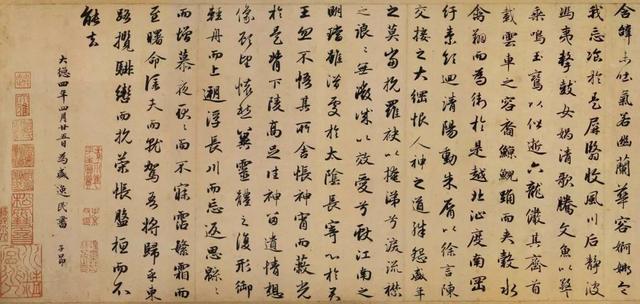 含辭未吐氣若幽蘭華容婀娜令
我忘飡於是屏翳收風川后靜波
馮夷擊鼓女媧清歌騰文魚以警
乘鳴玉鸞以偕逝六龍儼其齊首
載雲車之容裔鯨鯢踊而夾轂水
禽翔而為衛於是越北沚度南岡
紆素領迴清陽動朱脣以徐言陳
交接之大綱恨人神之道殊怨盛年
之莫當抗羅袂以掩涕兮淚流襟
之浪々無微情以效愛兮獻江南之
明璫雖潛處於太陰長寄心於君
王忽不悟其所舍悵神宵而蔽光
於是背下陵高足往神留遺情想
像顧望懷愁冀靈體之復形御
輕舟而上遡浮長川而忘返思緜々
而增慕夜耿々而不寐霑繁霜而
至曙命僕夫而就駕吾將歸乎東
路攬騑轡而抗策悵盤桓而不
能去
大德四年四月廿五日為盛逸民書 子昂